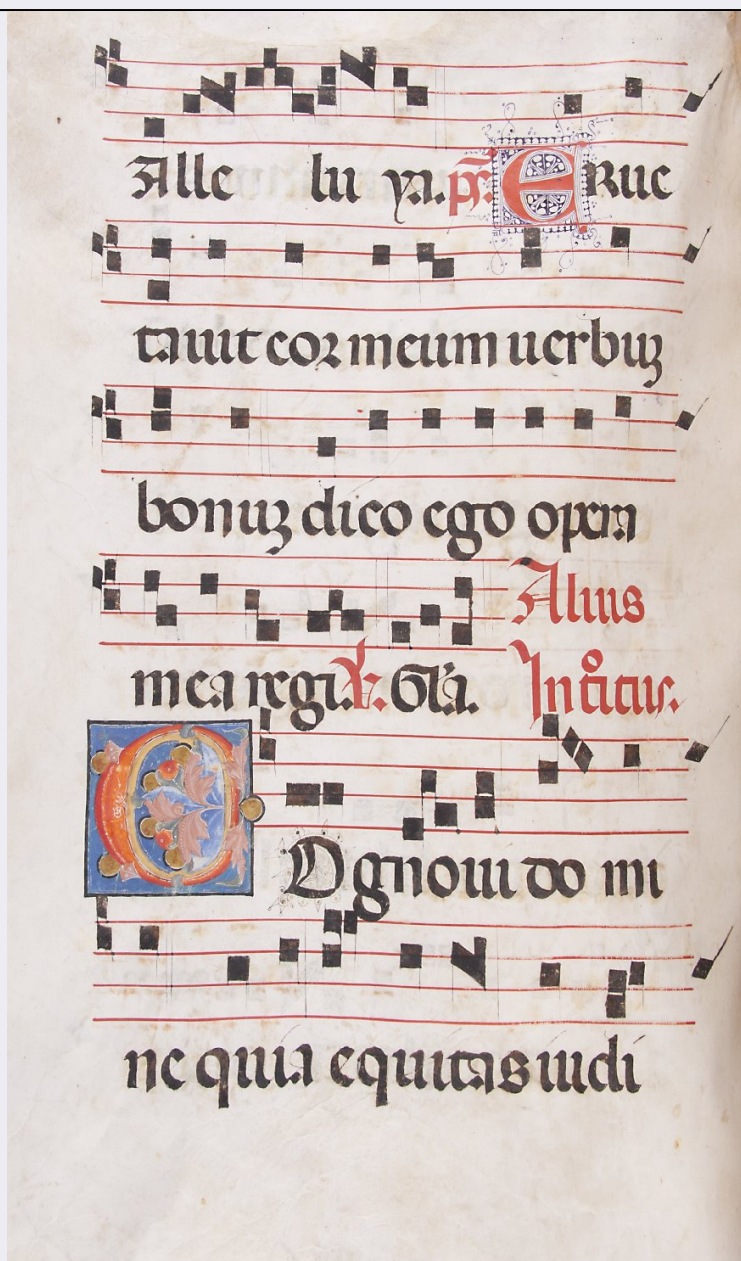 Alle lu ya. ps. ERuc
tauit cor meum uerbuʒ
bonuʒ dico ego opera
mea regi. V. Gla. Alius
Introitus.
COgnoui do mi
ne quia equitas iudi